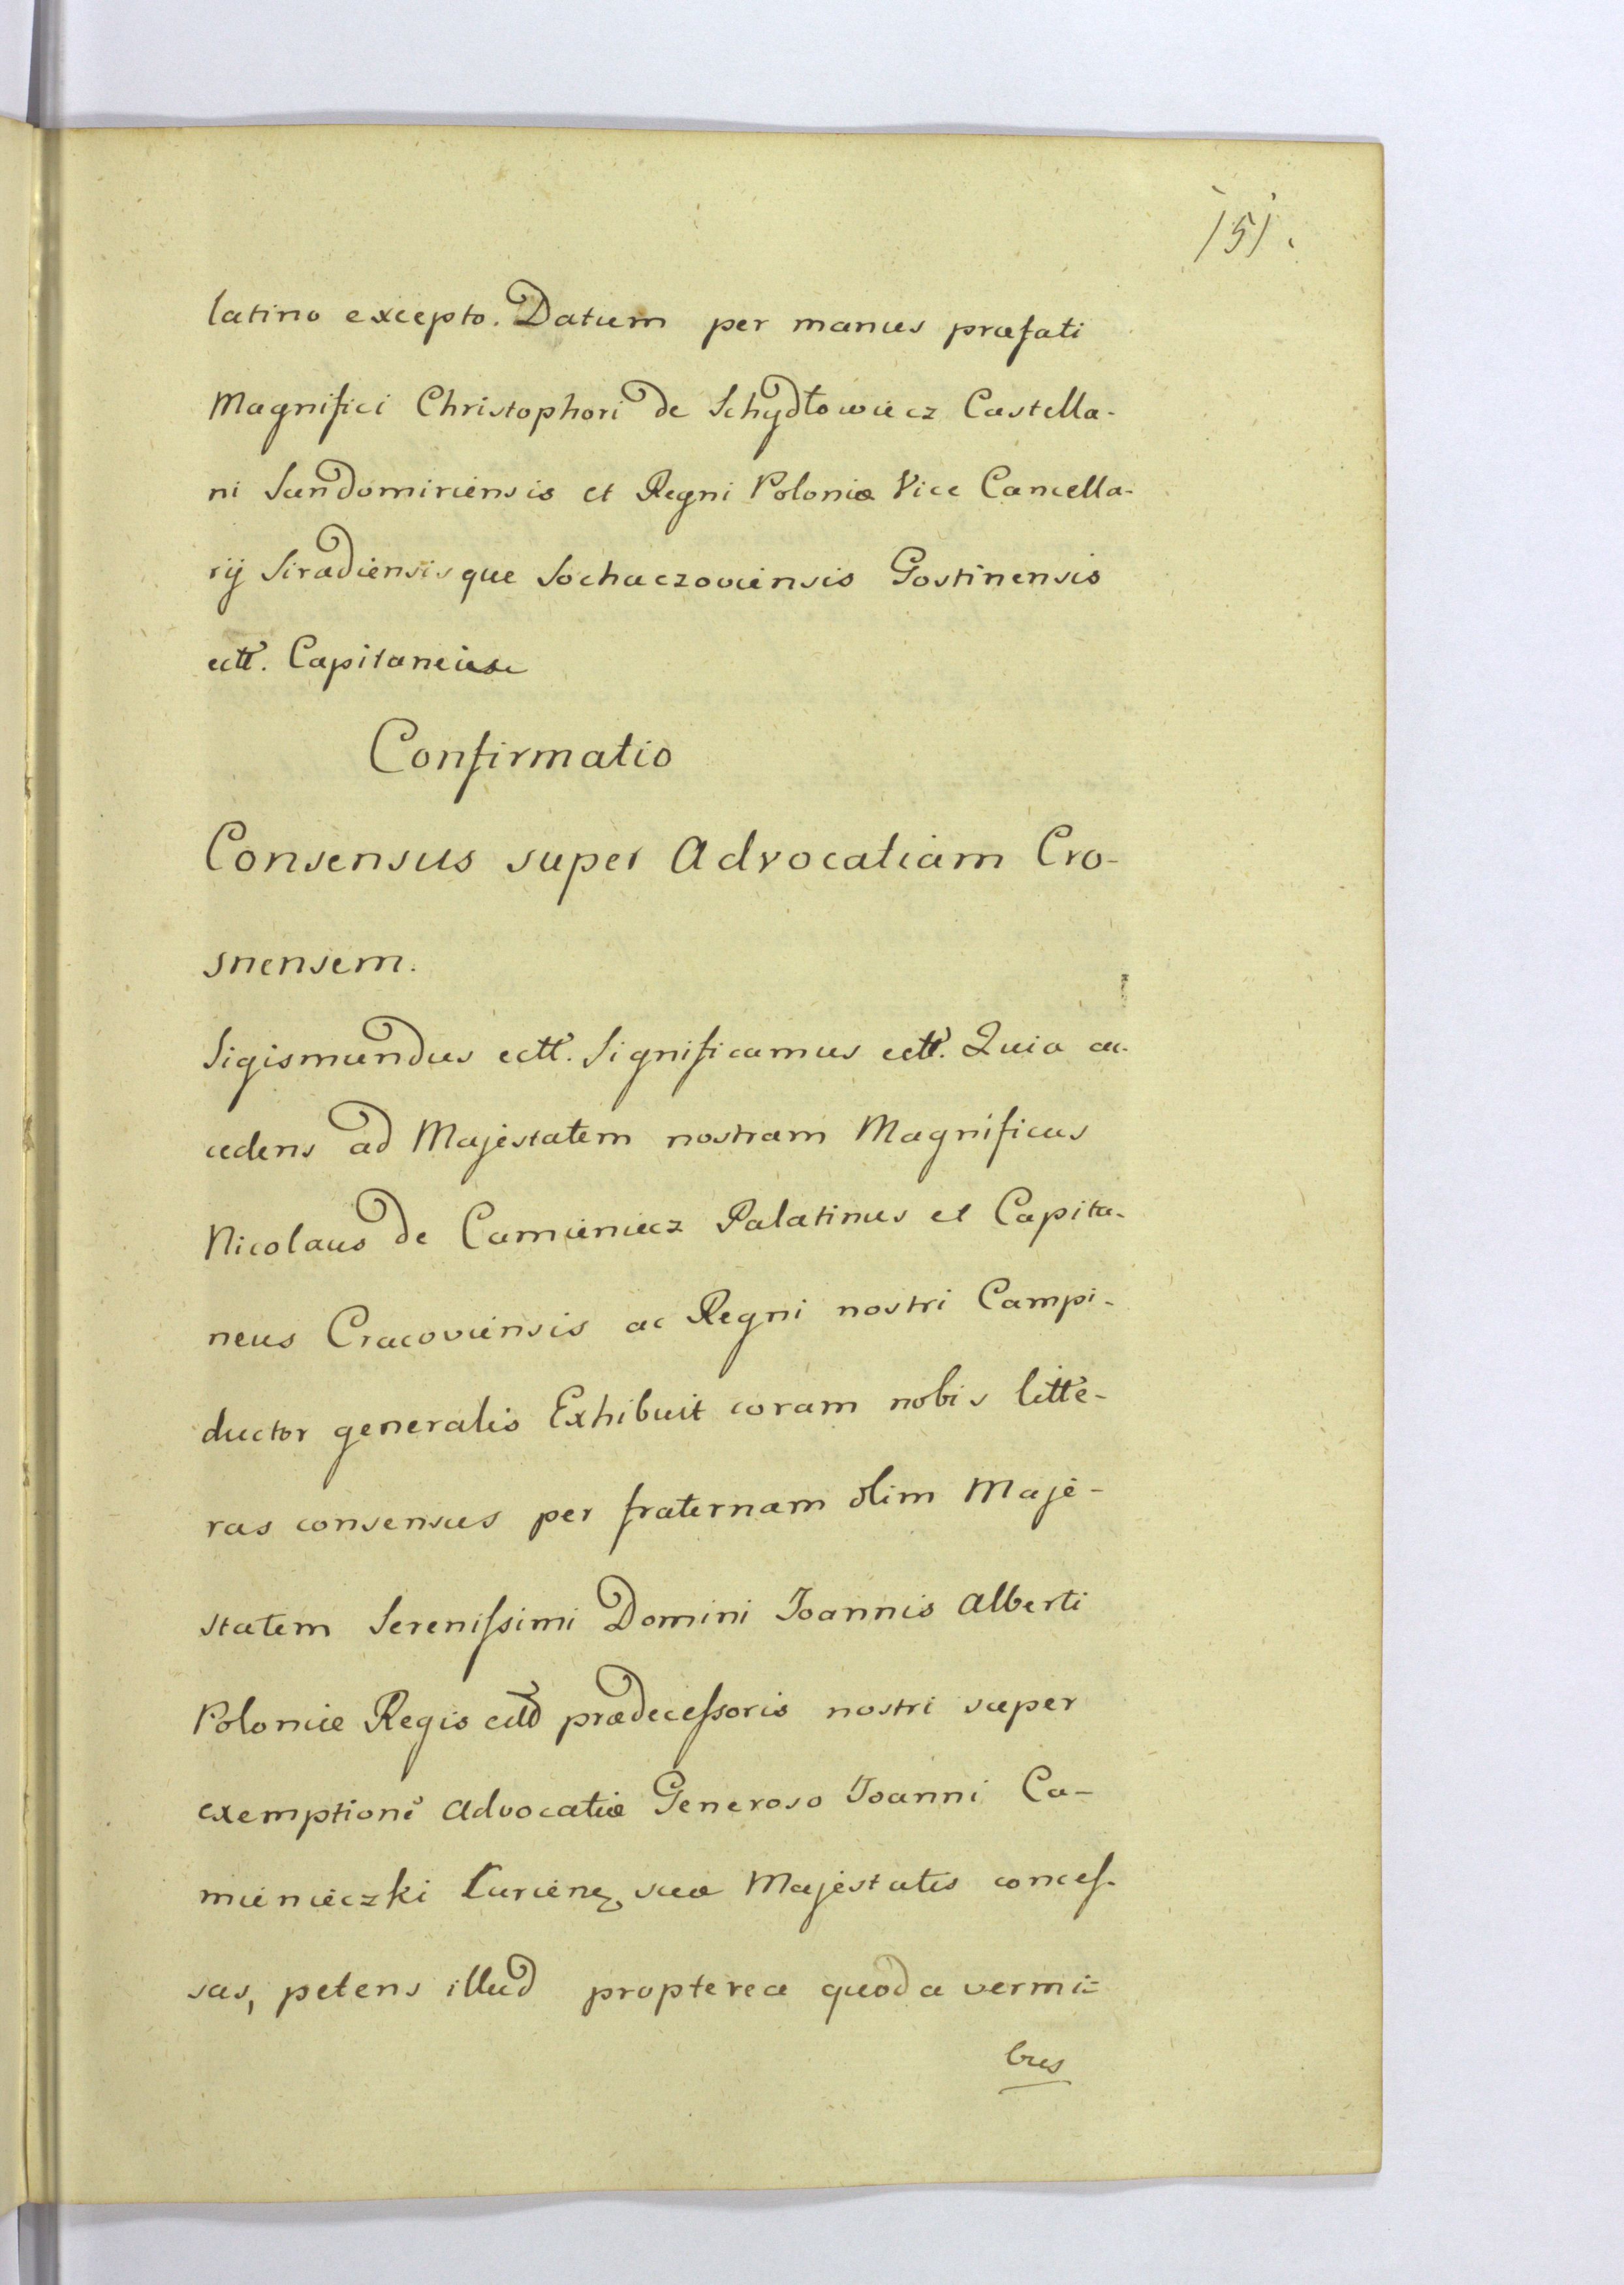 151.
latino excepto. Datum per manus præfati
Magnifici Christophori de Schydłowiecz Castella-
ni Sandomiriensis et Regni Poloniæ Vice Cancella-
rij Siradiensisque Sochaczoviensis Gostinensis
ectt. Capitanei
Confirmatio
Consensus super Advocatiam Cro-
snensem.
Sigismundus ectt. Significamus ectt. Quia ac-
cedens ad Majestatem nostram Magnificus
Nicolaus de Camieniecz Palatinus et Capita-
neus Cracoviensis ac Regni nostri Campi-
ductor generalis Exhibuit coram nobis litte-
ras consensus per fraternam olim Maje-
statem Serenissimi Domini Joannis Alberti
Poloniæ Regis prædecessoris nostri super
exemptione Advocatiæ Generoso Joanni Ca-
mienieczki suæ Majestatis conces-
sas, petens illud propterea quod a vermi=
bus